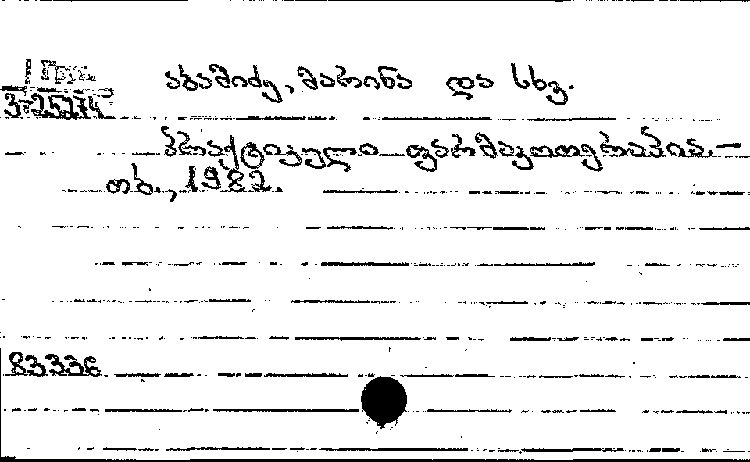 Груз.
3-25274
აბაშიძე, მარინა და სხვ.
პრაქტიკული ფარმაკოთერაპია.—
თბ., 1982.
83336